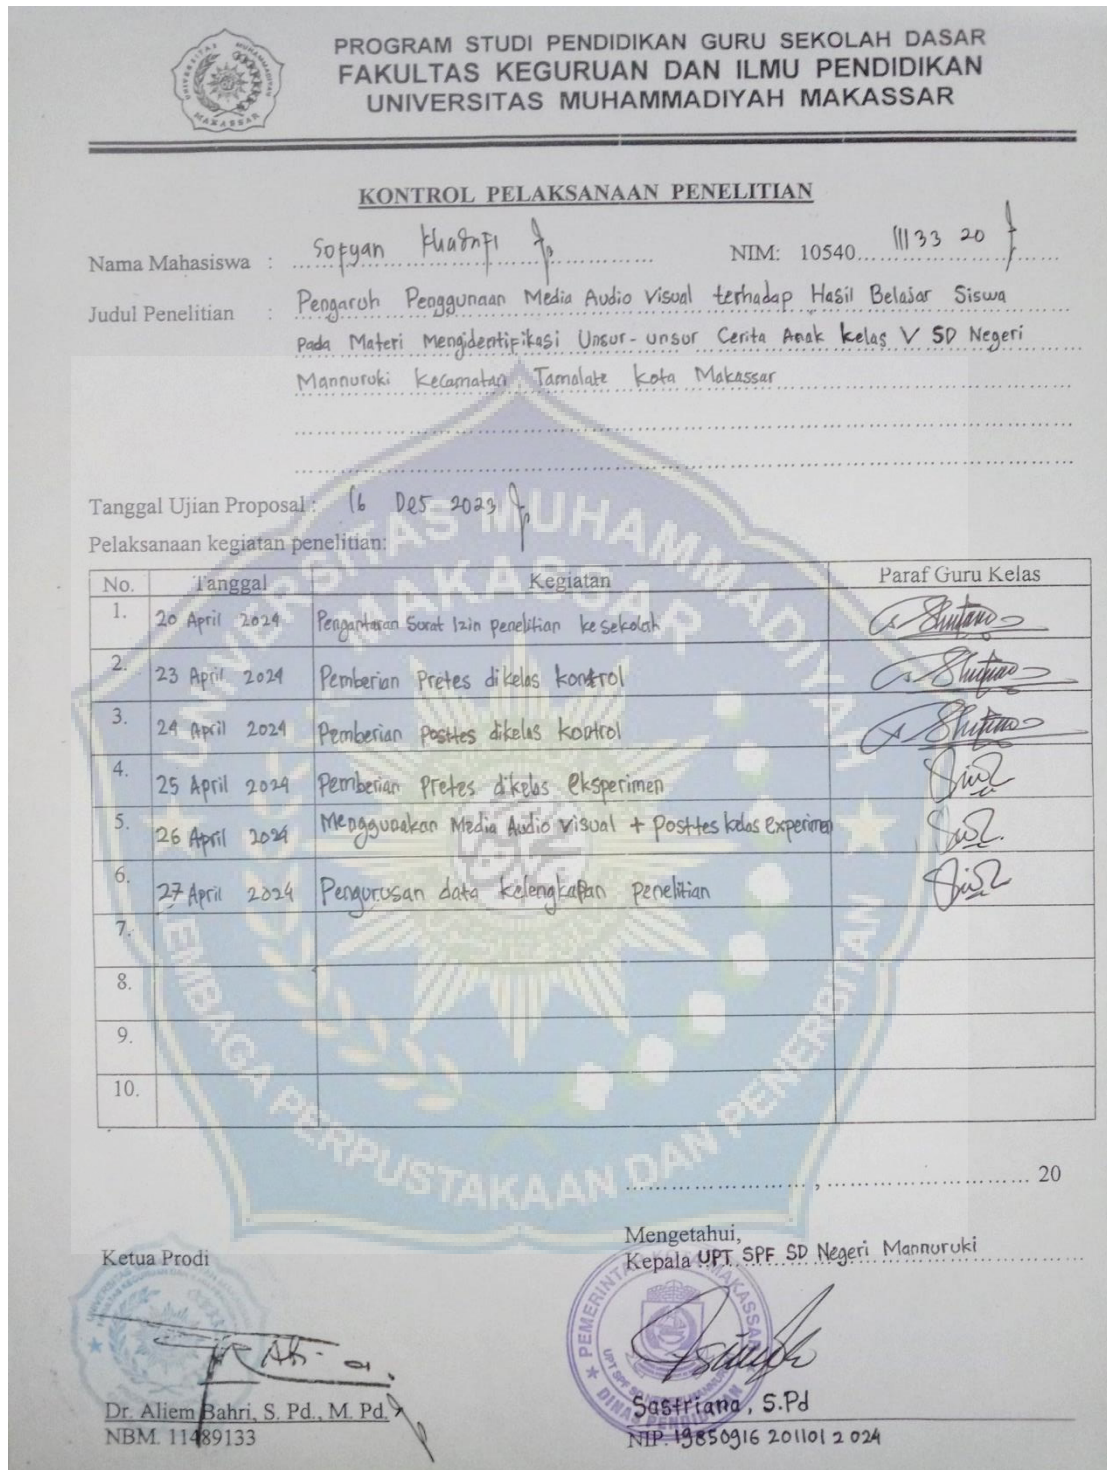 PROGRAM STUDI PENDIDIKAN GURU SEKOLAH DASAR
FAKULTAS KEGURUAN DAN ILMU PENDIDIKAN
UNIVERSITAS MUHAMMADIYAH MAKASSAR
KONTROL PELAKSANAAN PENELITIAN
Nama Mahasiswa : Sofyan NIM: 10540 11133 20
Judul Penelitian : Pengaruh Penggunaan Media Audio Visual terhadap Hasil Belajar Siswa
Pada Materi Mengidentifikasi Unsur-unsur Cerita Anak kelas V SD Negeri
Mannuruki Kecamatan Tamalate Kota Makassar
Tanggal Ujian Proposal : 16 Des 2023
Pelaksanaan kegiatan penelitian:
No. Tanggal Kegiatan Paraf Guru Kelas
1. 20 April 2024 Pengantaran Surat Izin penelitian ke sekolah
2. 23 April 2024 Pemberian Pretes dikelas kontrol
3. 24 April 2024 Pemberian Posttes dikelas kontrol
4. 25 April 2024 Pemberian Pretes dikelas eksperimen
5. 26 April 2024 Menggunakan Media Audio Visual + Posttes kelas experimen
6. 27 April 2024 Pengurusan data kelengkapan penelitian
7.
8.
9.
10.
UNIVERSITAS MUHAMMADIYAH
MAKASSAR
LEMBAGA PERPUSTAKAAN DAN PENERBITAN
, 20
Mengetahui,
Ketua Prodi
Kepala UPT SPF SD Negeri Mannuruki
PEMERINTAH KOTA MAKASSAR
DINAS PENDIDIKAN
Dr. Aliem Bahri, S. Pd., M. Pd.
NBM. 11489133
Sastriana, S.Pd
NIP. 19850916 201101 2 024